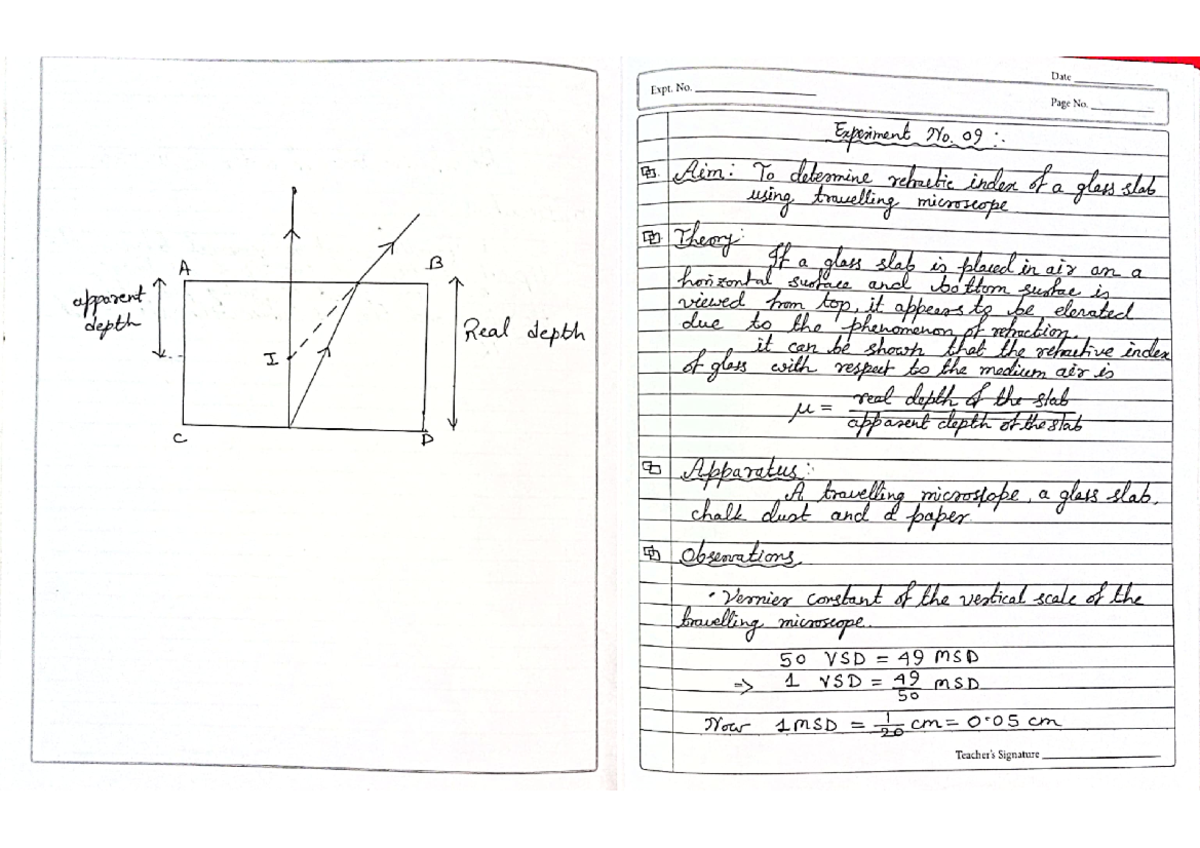 A
B
apparent
depth
I
Real depth
C
D
Expt. No.
Date
Page No.
Experiment No. 09 :.
Aim: To determine refractic index of a glass slab
using travelling microscope
Theory:
If a glass slab is placed in air on a
horizontal surface and bottom surfae is
viewed from top, it appears to be elevated
due to the phenomenon of refraction.
it can be shown that the refractive index
of glass with respect to the medium air is
μ = real depth of the slab
apparent depth of the slab
Apparatus:
A travelling microscope, a glass slab,
chalk dust and a paper.
Observations
• Vernier constant of the vertical scale of the
travelling microscope.
50 VSD = 49 MSD
=> 1 VSD = 49/50 MSD
Now 1MSD = 1/20 cm = 0.05 cm
Teacher's Signature